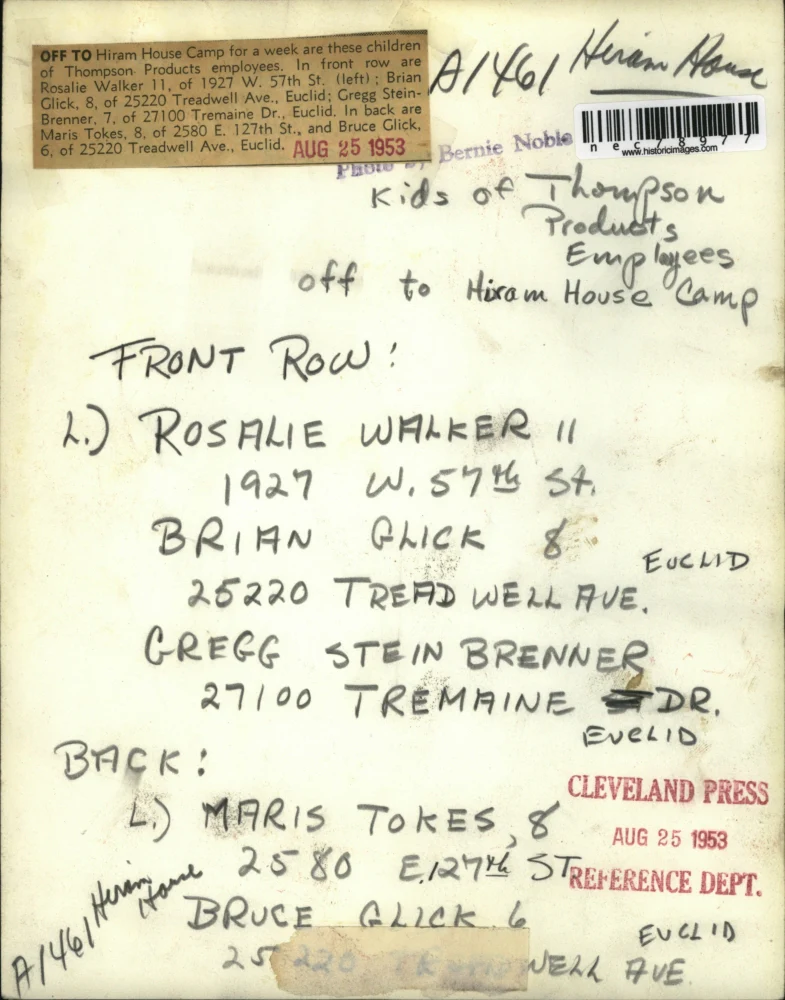 OFF TO Hiram House Camp for a week are these children
of Thompson Products employees. In front row are
Rosalie Walker 11, of 1927 W. 57th St. (left); Brian
Glick, 8, of 25220 Treadwell Ave., Euclid; Gregg Stein-
Brenner, 7, of 27100 Tremaine Dr., Euclid. In back are
Maris Tokes, 8, of 2580 E. 127th St., and Bruce Glick,
6, of 25220 Treadwell Ave., Euclid.
AUG 25 1953
A1461 Hiram House
nec78977
www.historicimages.com
Photo by Bernie Noble
Kids of Thompson
Products
Employees
off to Hiram House Camp
FRONT ROW:
L.) ROSALIE WALKER 11
1927 W. 57th St.
BRIAN GLICK 8
EUCLID
25220 TREADWELL AVE.
GREGG STEIN BRENNER
27100 TREMAINE DR.
EUCLID
BACK:
L.) MARIS TOKES, 8
2580 E. 127th ST
CLEVELAND PRESS
AUG 25 1953
REFERENCE DEPT.
BRUCE GLICK 6
EUCLID
25220 TREADWELL AVE
A1461 Hiram House